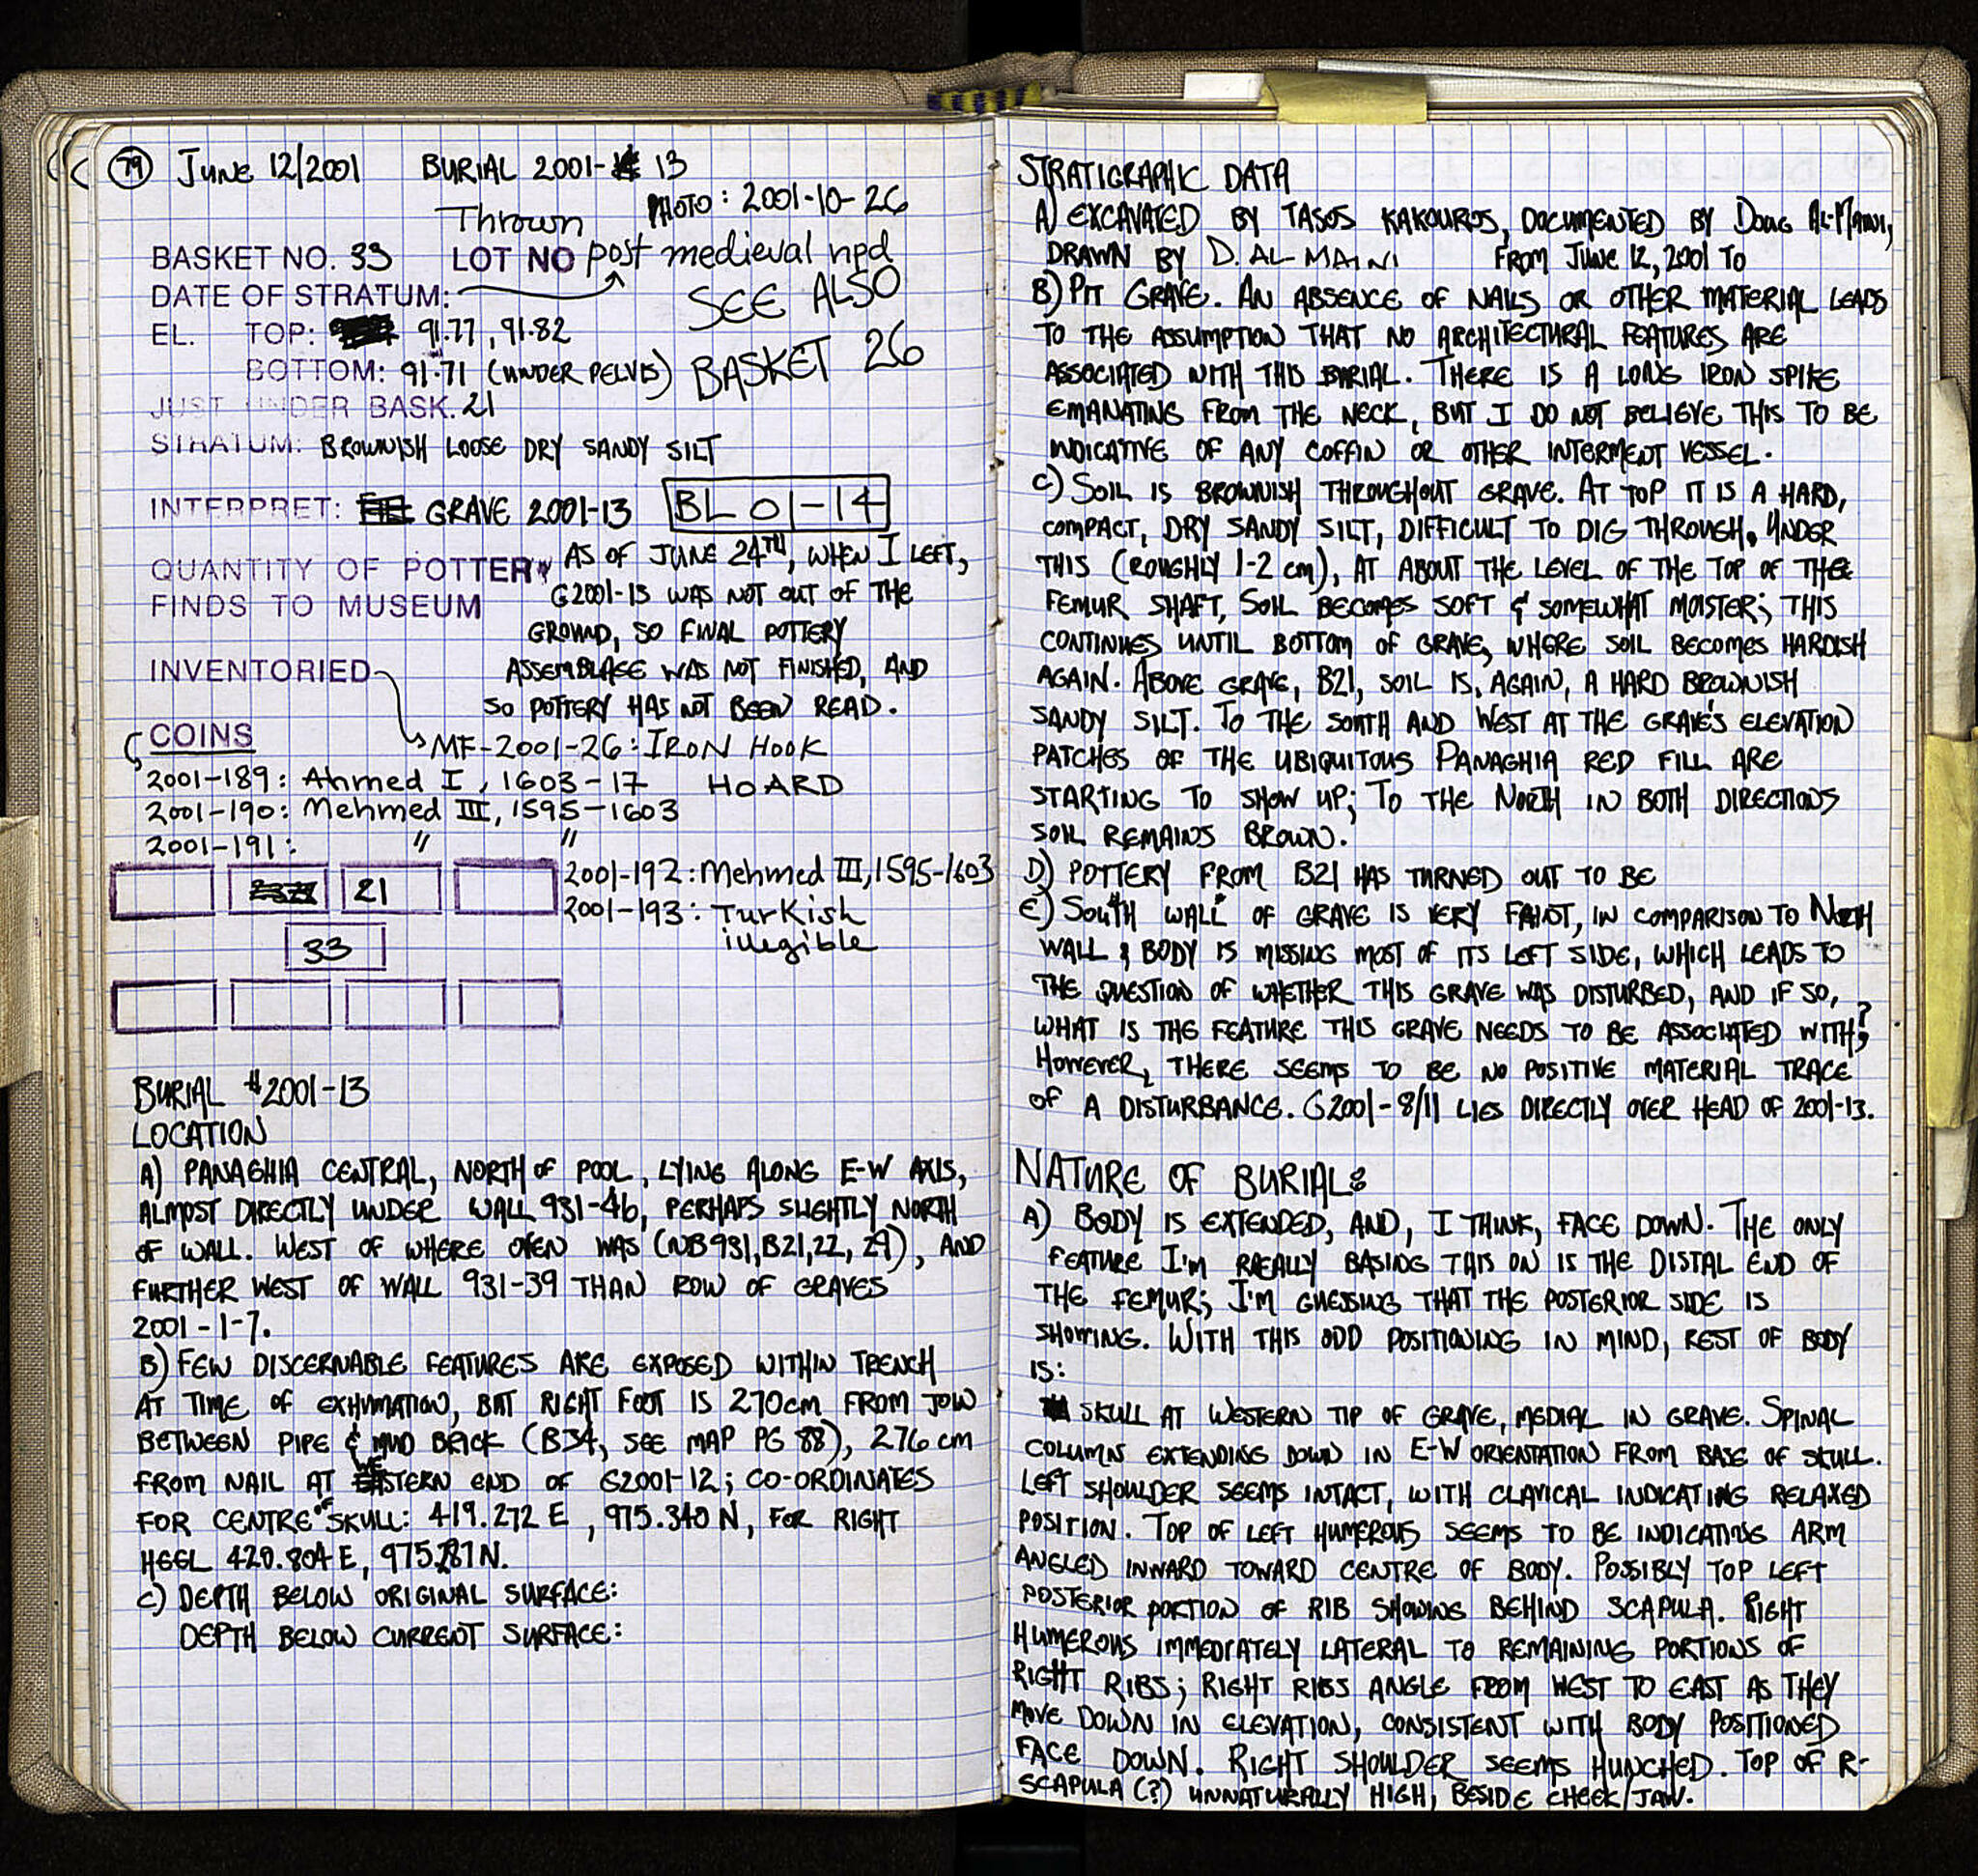 79 JUNE 12/2001 BURIAL 2001- 13
Thrown PHOTO: 2001-10-26
BASKET NO. 33 LOT NO post medieval npd
DATE OF STRATUM: SEE ALSO
EL. TOP: 91.77, 91.82
BOTTOM: 91.71 (UNDER PELVIS) BASKET 26
JUST UNDER BASK. 21
STRATUM: BROWNISH LOOSE DRY SANDY SILT
INTERPRET: GRAVE 2001-13 BL 01-14
QUANTITY OF POTTERY AS OF JUNE 24TH, WHEN I LEFT,
FINDS TO MUSEUM G2001-13 WAS NOT OUT OF THE
GROUND, SO FINAL POTTERY
INVENTORIED ASSEMBLAGE WAS NOT FINISHED, AND
SO POTTERY HAS NOT BEEN READ.
COINS MF-2001-26: IRON HOOK
2001-189: Ahmed I, 1603-17 HOARD
2001-190: Mehmed III, 1595-1603
2001-191: " "
2001-192: Mehmed III, 1595-1603
21
2001-193: Turkish
illegible
33
BURIAL #2001-13
LOCATION
A) PANAGHIA CENTRAL, NORTH OF POOL, LYING ALONG E-W AXIS,
ALMOST DIRECTLY UNDER WALL 931-46, PERHAPS SLIGHTLY NORTH
OF WALL. WEST OF WHERE OVEN WAS (NB931, B21, 22, 29), AND
FURTHER WEST OF WALL 931-39 THAN ROW OF GRAVES
2001-1-7.
B) FEW DISCERNABLE FEATURES ARE EXPOSED WITHIN TRENCH
AT TIME OF EXHUMATION, BUT RIGHT FOOT IS 270cm FROM JOIN
BETWEEN PIPE & MUD BRICK (B34, SEE MAP PG 88), 276 cm
FROM NAIL AT WESTERN END OF G2001-12; CO-ORDINATES
FOR CENTRE OF SKULL: 419.272 E, 975.340 N, FOR RIGHT
HEEL 420.804 E, 975.287 N.
C) DEPTH BELOW ORIGINAL SURFACE:
DEPTH BELOW CURRENT SURFACE:
STRATIGRAPHIC DATA
A) EXCAVATED BY TASOS KAKOUROS, DOCUMENTED BY DOUG AL-MAINI,
DRAWN BY D. AL-MAINI FROM JUNE 12, 2001 TO
B) PIT GRAVE. AN ABSENCE OF NAILS OR OTHER MATERIAL LEADS
TO THE ASSUMPTION THAT NO ARCHITECTURAL FEATURES ARE
ASSOCIATED WITH THIS BURIAL. THERE IS A LONG IRON SPIKE
EMANATING FROM THE NECK, BUT I DO NOT BELIEVE THIS TO BE
INDICATIVE OF ANY COFFIN OR OTHER INTERMENT VESSEL.
C) SOIL IS BROWNISH THROUGHOUT GRAVE. AT TOP IT IS A HARD,
COMPACT, DRY SANDY SILT, DIFFICULT TO DIG THROUGH. UNDER
THIS (ROUGHLY 1-2 cm), AT ABOUT THE LEVEL OF THE TOP OF THE
FEMUR SHAFT, SOIL BECOMES SOFT & SOMEWHAT MOISTER; THIS
CONTINUES UNTIL BOTTOM OF GRAVE, WHERE SOIL BECOMES HARDISH
AGAIN. ABOVE GRAVE, B21, SOIL IS, AGAIN, A HARD BROWNISH
SANDY SILT. TO THE SOUTH AND WEST AT THE GRAVE'S ELEVATION
PATCHES OF THE UBIQUITOUS PANAGHIA RED FILL ARE
STARTING TO SHOW UP; TO THE NORTH IN BOTH DIRECTIONS
SOIL REMAINS BROWN.
D) POTTERY FROM B21 HAS TURNED OUT TO BE
E) SOUTH WALL OF GRAVE IS VERY FAINT, IN COMPARISON TO NORTH
WALL & BODY IS MISSING MOST OF ITS LEFT SIDE, WHICH LEADS TO
THE QUESTION OF WHETHER THIS GRAVE WAS DISTURBED, AND IF SO,
WHAT IS THE FEATURE THIS GRAVE NEEDS TO BE ASSOCIATED WITH?
HOWEVER, THERE SEEMS TO BE NO POSITIVE MATERIAL TRACE
OF A DISTURBANCE. G2001-8/11 LIES DIRECTLY OVER HEAD OF 2001-13.
NATURE OF BURIAL:
A) BODY IS EXTENDED, AND, I THINK, FACE DOWN. THE ONLY
FEATURE I'M REALLY BASING THIS ON IS THE DISTAL END OF
THE FEMUR; I'M GUESSING THAT THE POSTERIOR SIDE IS
SHOWING. WITH THIS ODD POSITIONING IN MIND, REST OF BODY
IS:
SKULL AT WESTERN TIP OF GRAVE, MEDIAL IN GRAVE. SPINAL
COLUMN EXTENDING DOWN IN E-W ORIENTATION FROM BASE OF SKULL.
LEFT SHOULDER SEEMS INTACT, WITH CLAVICAL INDICATING RELAXED
POSITION. TOP OF LEFT HUMEROUS SEEMS TO BE INDICATING ARM
ANGLED INWARD TOWARD CENTRE OF BODY. POSSIBLY TOP LEFT
POSTERIOR PORTION OF RIB SHOWING BEHIND SCAPULA. RIGHT
HUMEROUS IMMEDIATELY LATERAL TO REMAINING PORTIONS OF
RIGHT RIBS; RIGHT RIBS ANGLE FROM WEST TO EAST AS THEY
MOVE DOWN IN ELEVATION, CONSISTENT WITH BODY POSITIONED
FACE DOWN. RIGHT SHOULDER SEEMS HUNCHED. TOP OF R-
SCAPULA (?) UNNATURALLY HIGH, BESIDE CHEEK/JAW.